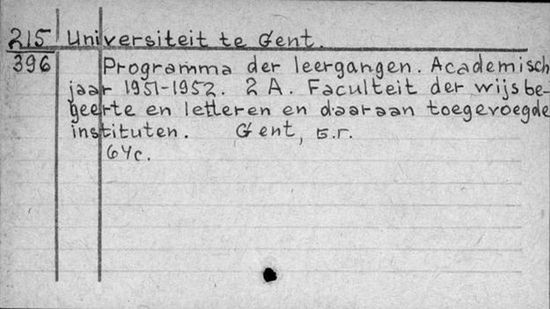 215 Universiteit te Gent.
396 Programma der leergangen. Academisch
jaar 1951-1952. 2 A. Faculteit der wijsbe-
geerte en letteren en daaraan toegevoegde
instituten. Gent, s.r.
64c.